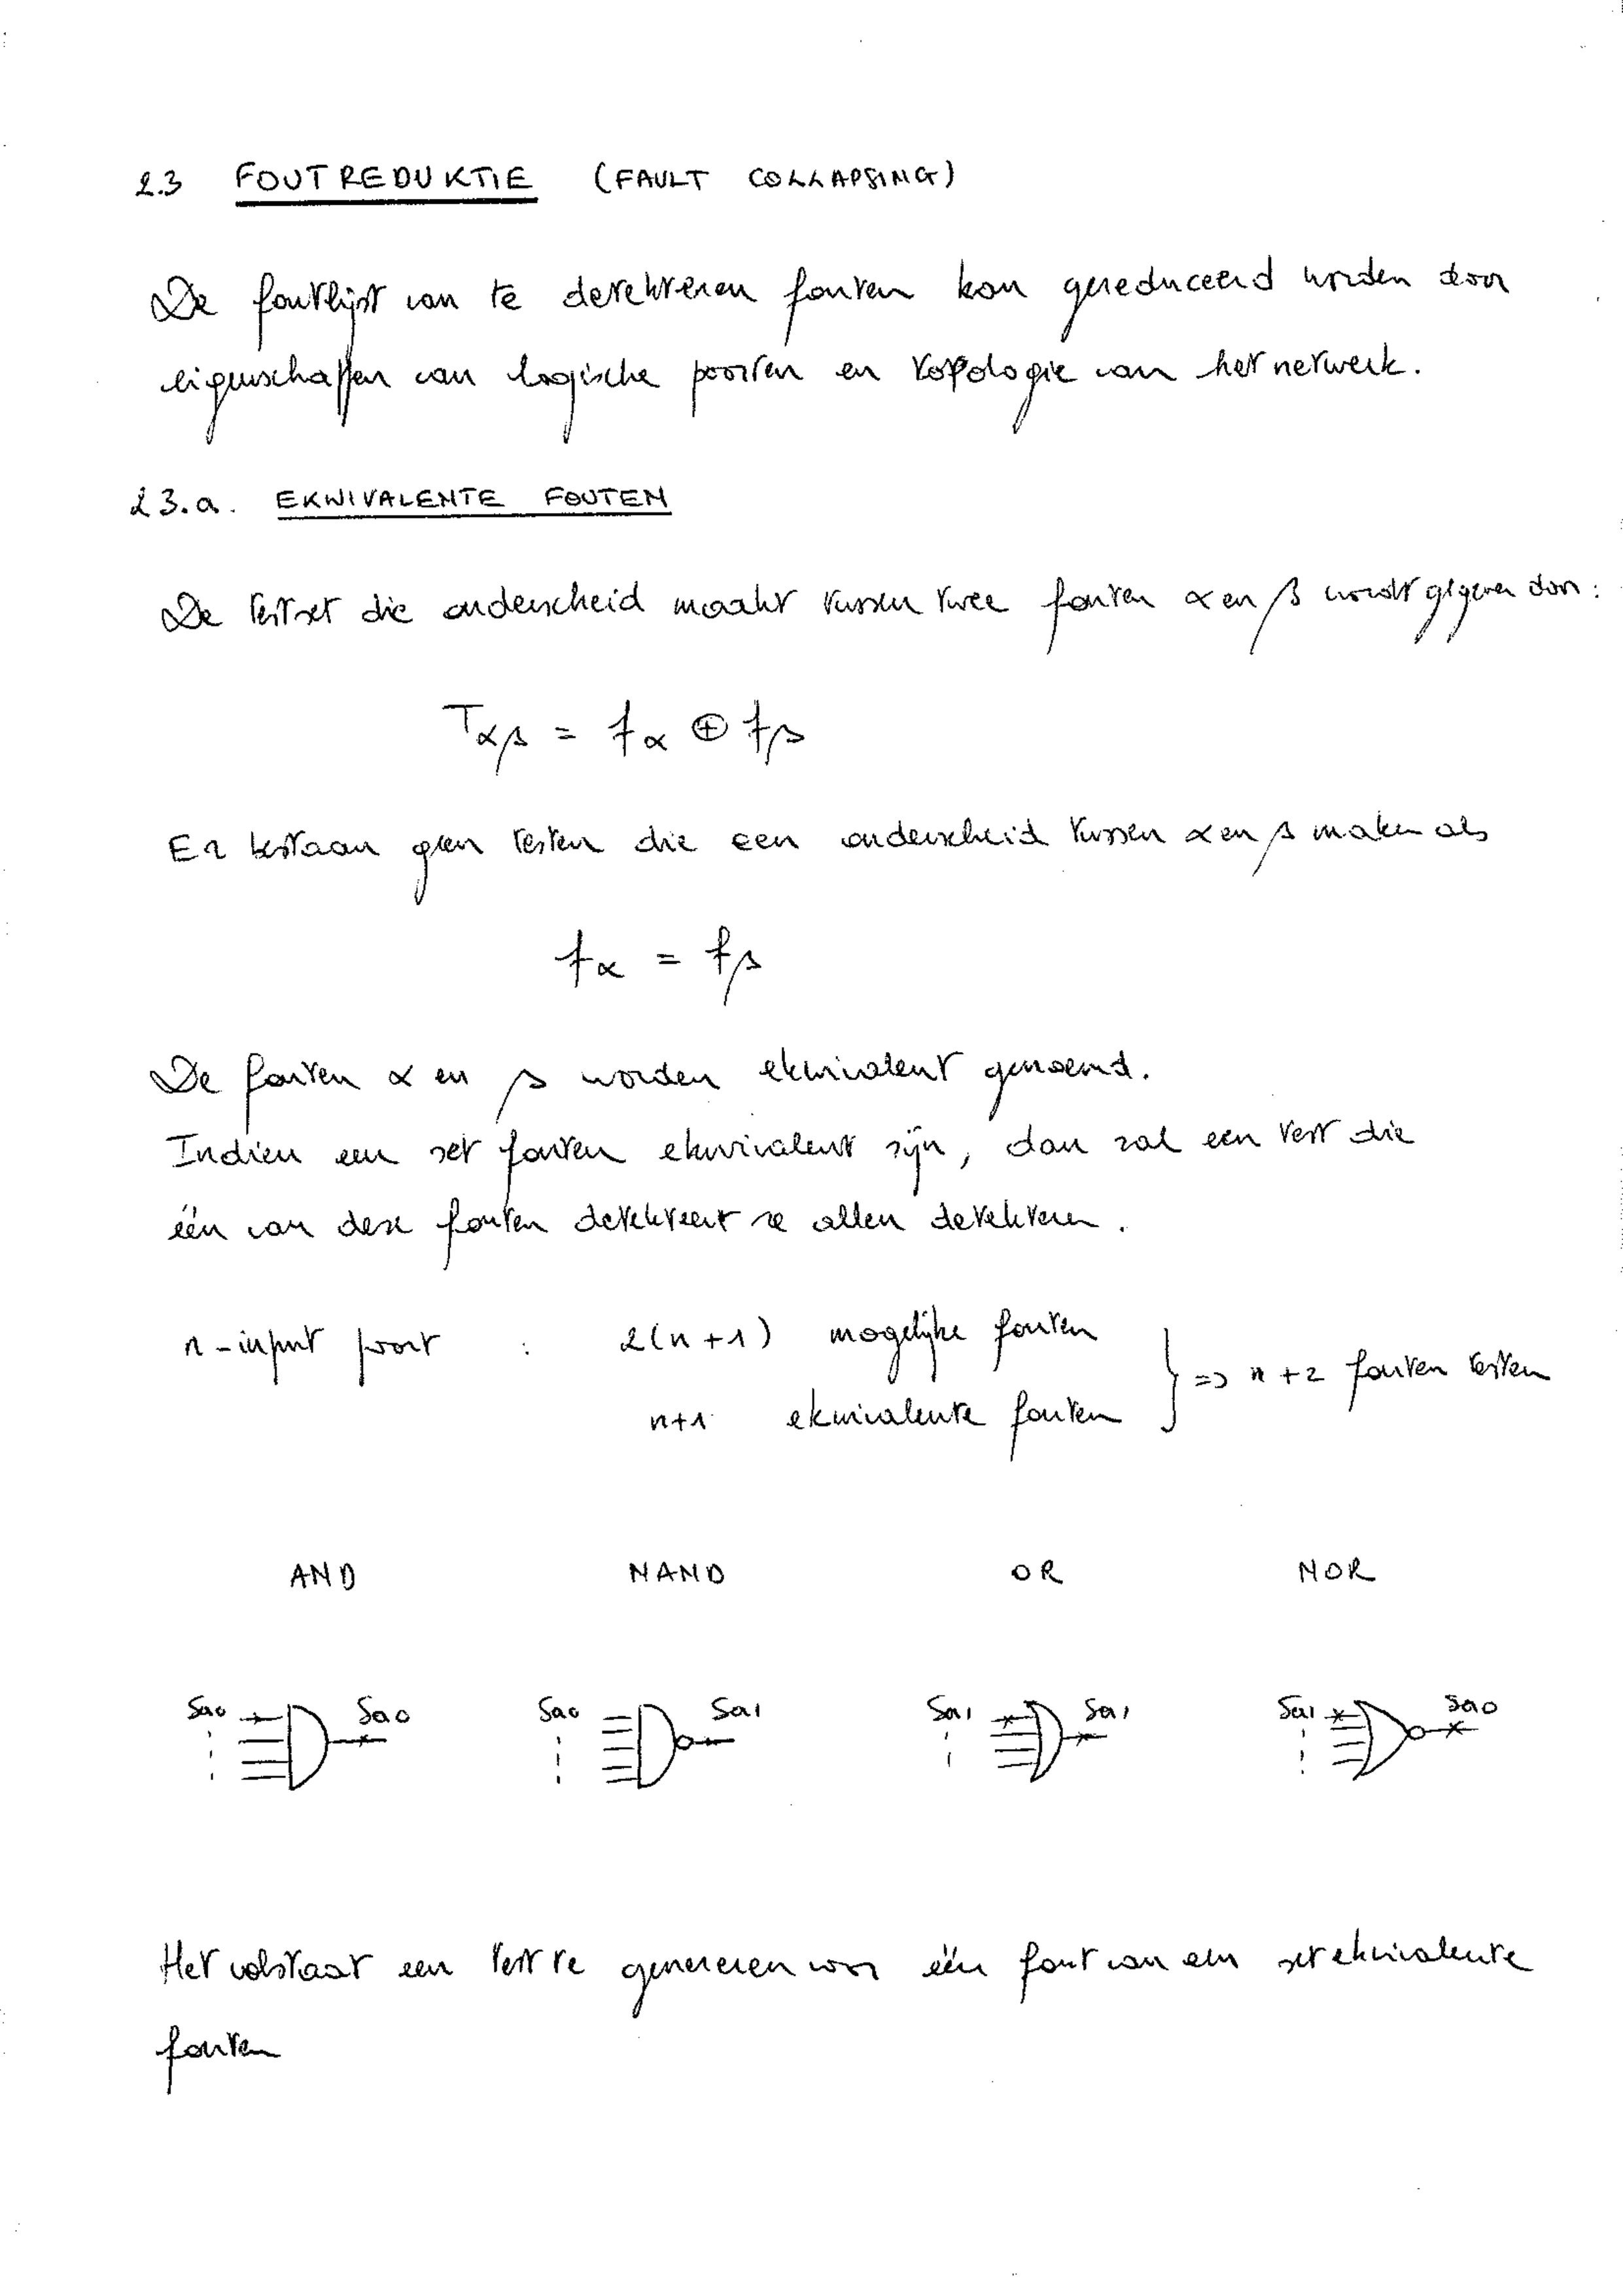 2.3 FOUTREDUKTIE (FAULT COLLAPSING)
De foutlijst van te detekteren fouten kan gereduceerd worden door
eigenschappen van logische poorten en topologie van het netwerk.
2.3.a. EKWIVALENTE FOUTEN
De testset die onderscheid maakt tussen twee fouten α en β wordt gegeven door:
Tαβ = fα ⊕ fβ
Er bestaan geen testen die een onderscheid tussen α en β maken als
fα = fβ
De fouten α en β worden ekwivalent genoemd.
Indien een set fouten ekwivalent zijn, dan zal een test die
één van deze fouten detekteert ze allen detekteren.
n-input poort : 2(n+1) mogelijke fouten
} => n+2 fouten testen
n+1 ekwivalente fouten
AND NAND OR NOR
Sa0 Sa0 Sa0 Sa1 Sa1 Sa1 Sa1 Sa0
Het volstaat een test te genereren voor één fout van een set ekwivalente
fouten